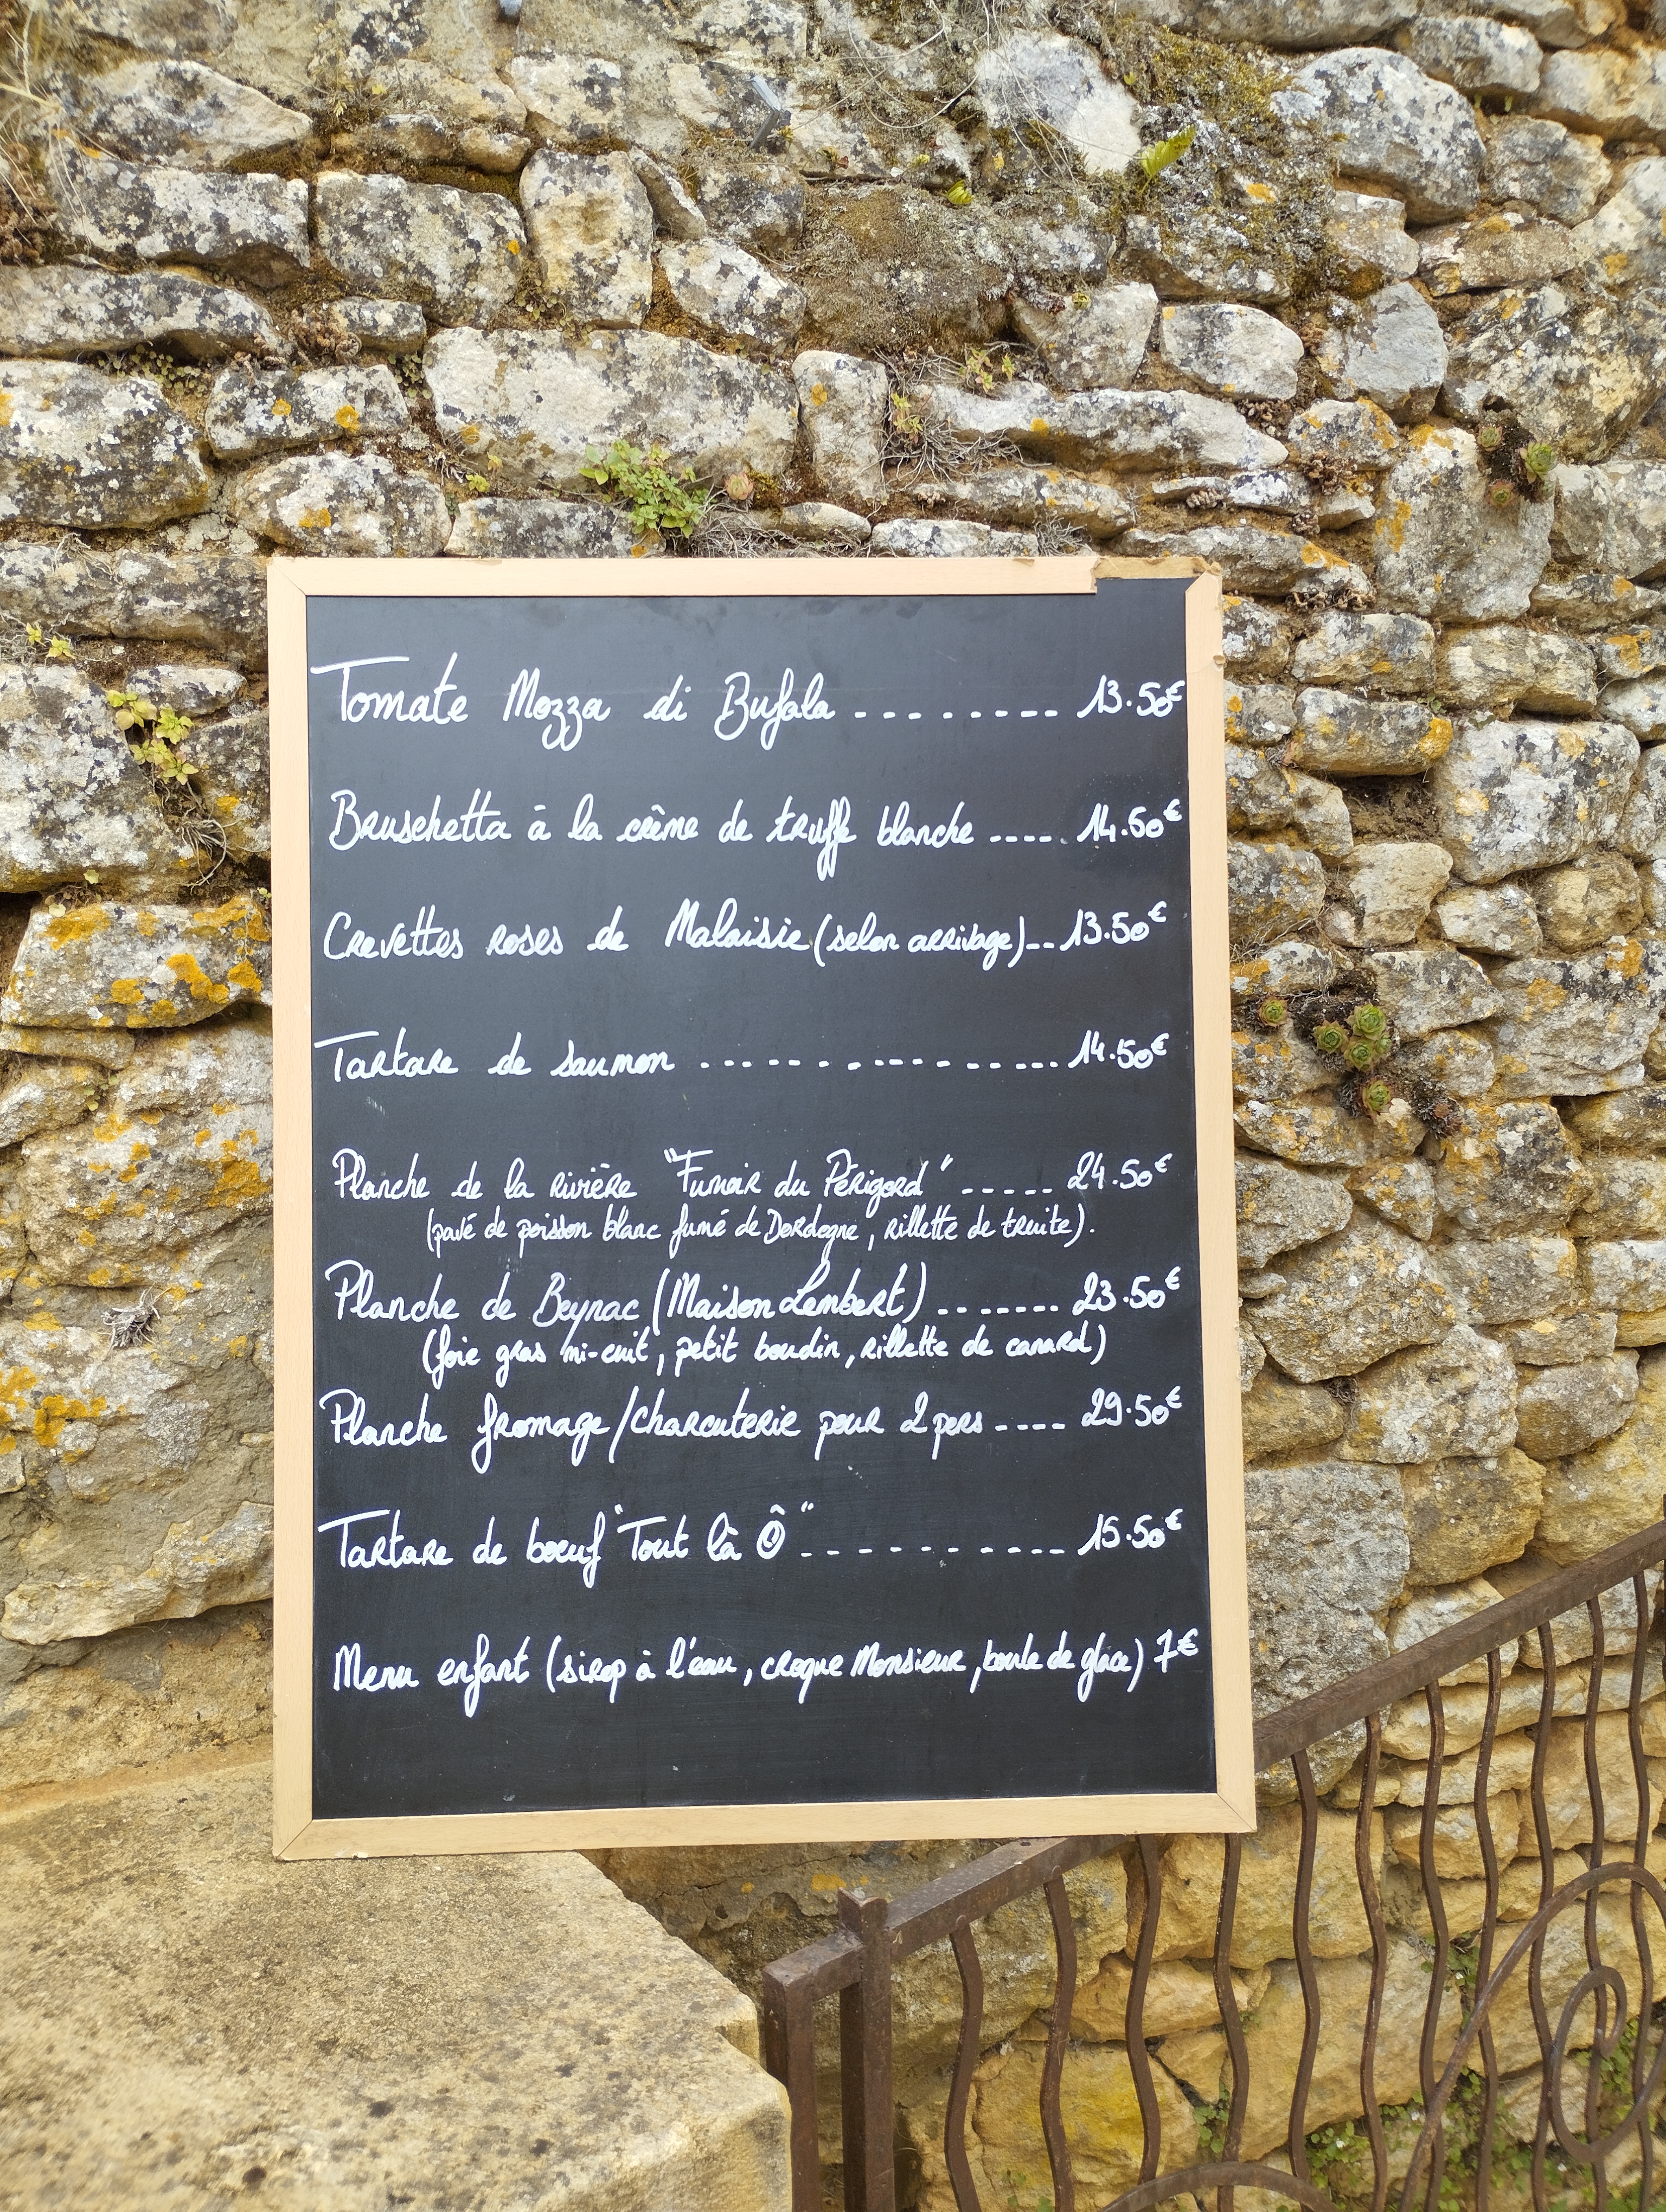 Tomate Mozza di Bufala ......... 13.50€
Bruschetta à la crème de truffe blanche .... 14.50€
Crevettes roses de Malaisie (selon arrivage) .. 13.50€
Tartare de saumon .................. 14.50€
Planche de la rivière "Fumoir du Périgord" ..... 24.50€
(pavé de poisson blanc fumé de Dordogne, rillette de truite).
Planche de Beynac (Maison Lembert) ....... 23.50€
(foie gras mi-cuit, petit boudin, rillette de canard)
Planche fromage/charcuterie pour 2 pers .... 29.50€
Tartare de bœuf "Tout là Ô" ........... 15.50€
Menu enfant (sirop à l'eau, croque Monsieur, boule de glace) 7€